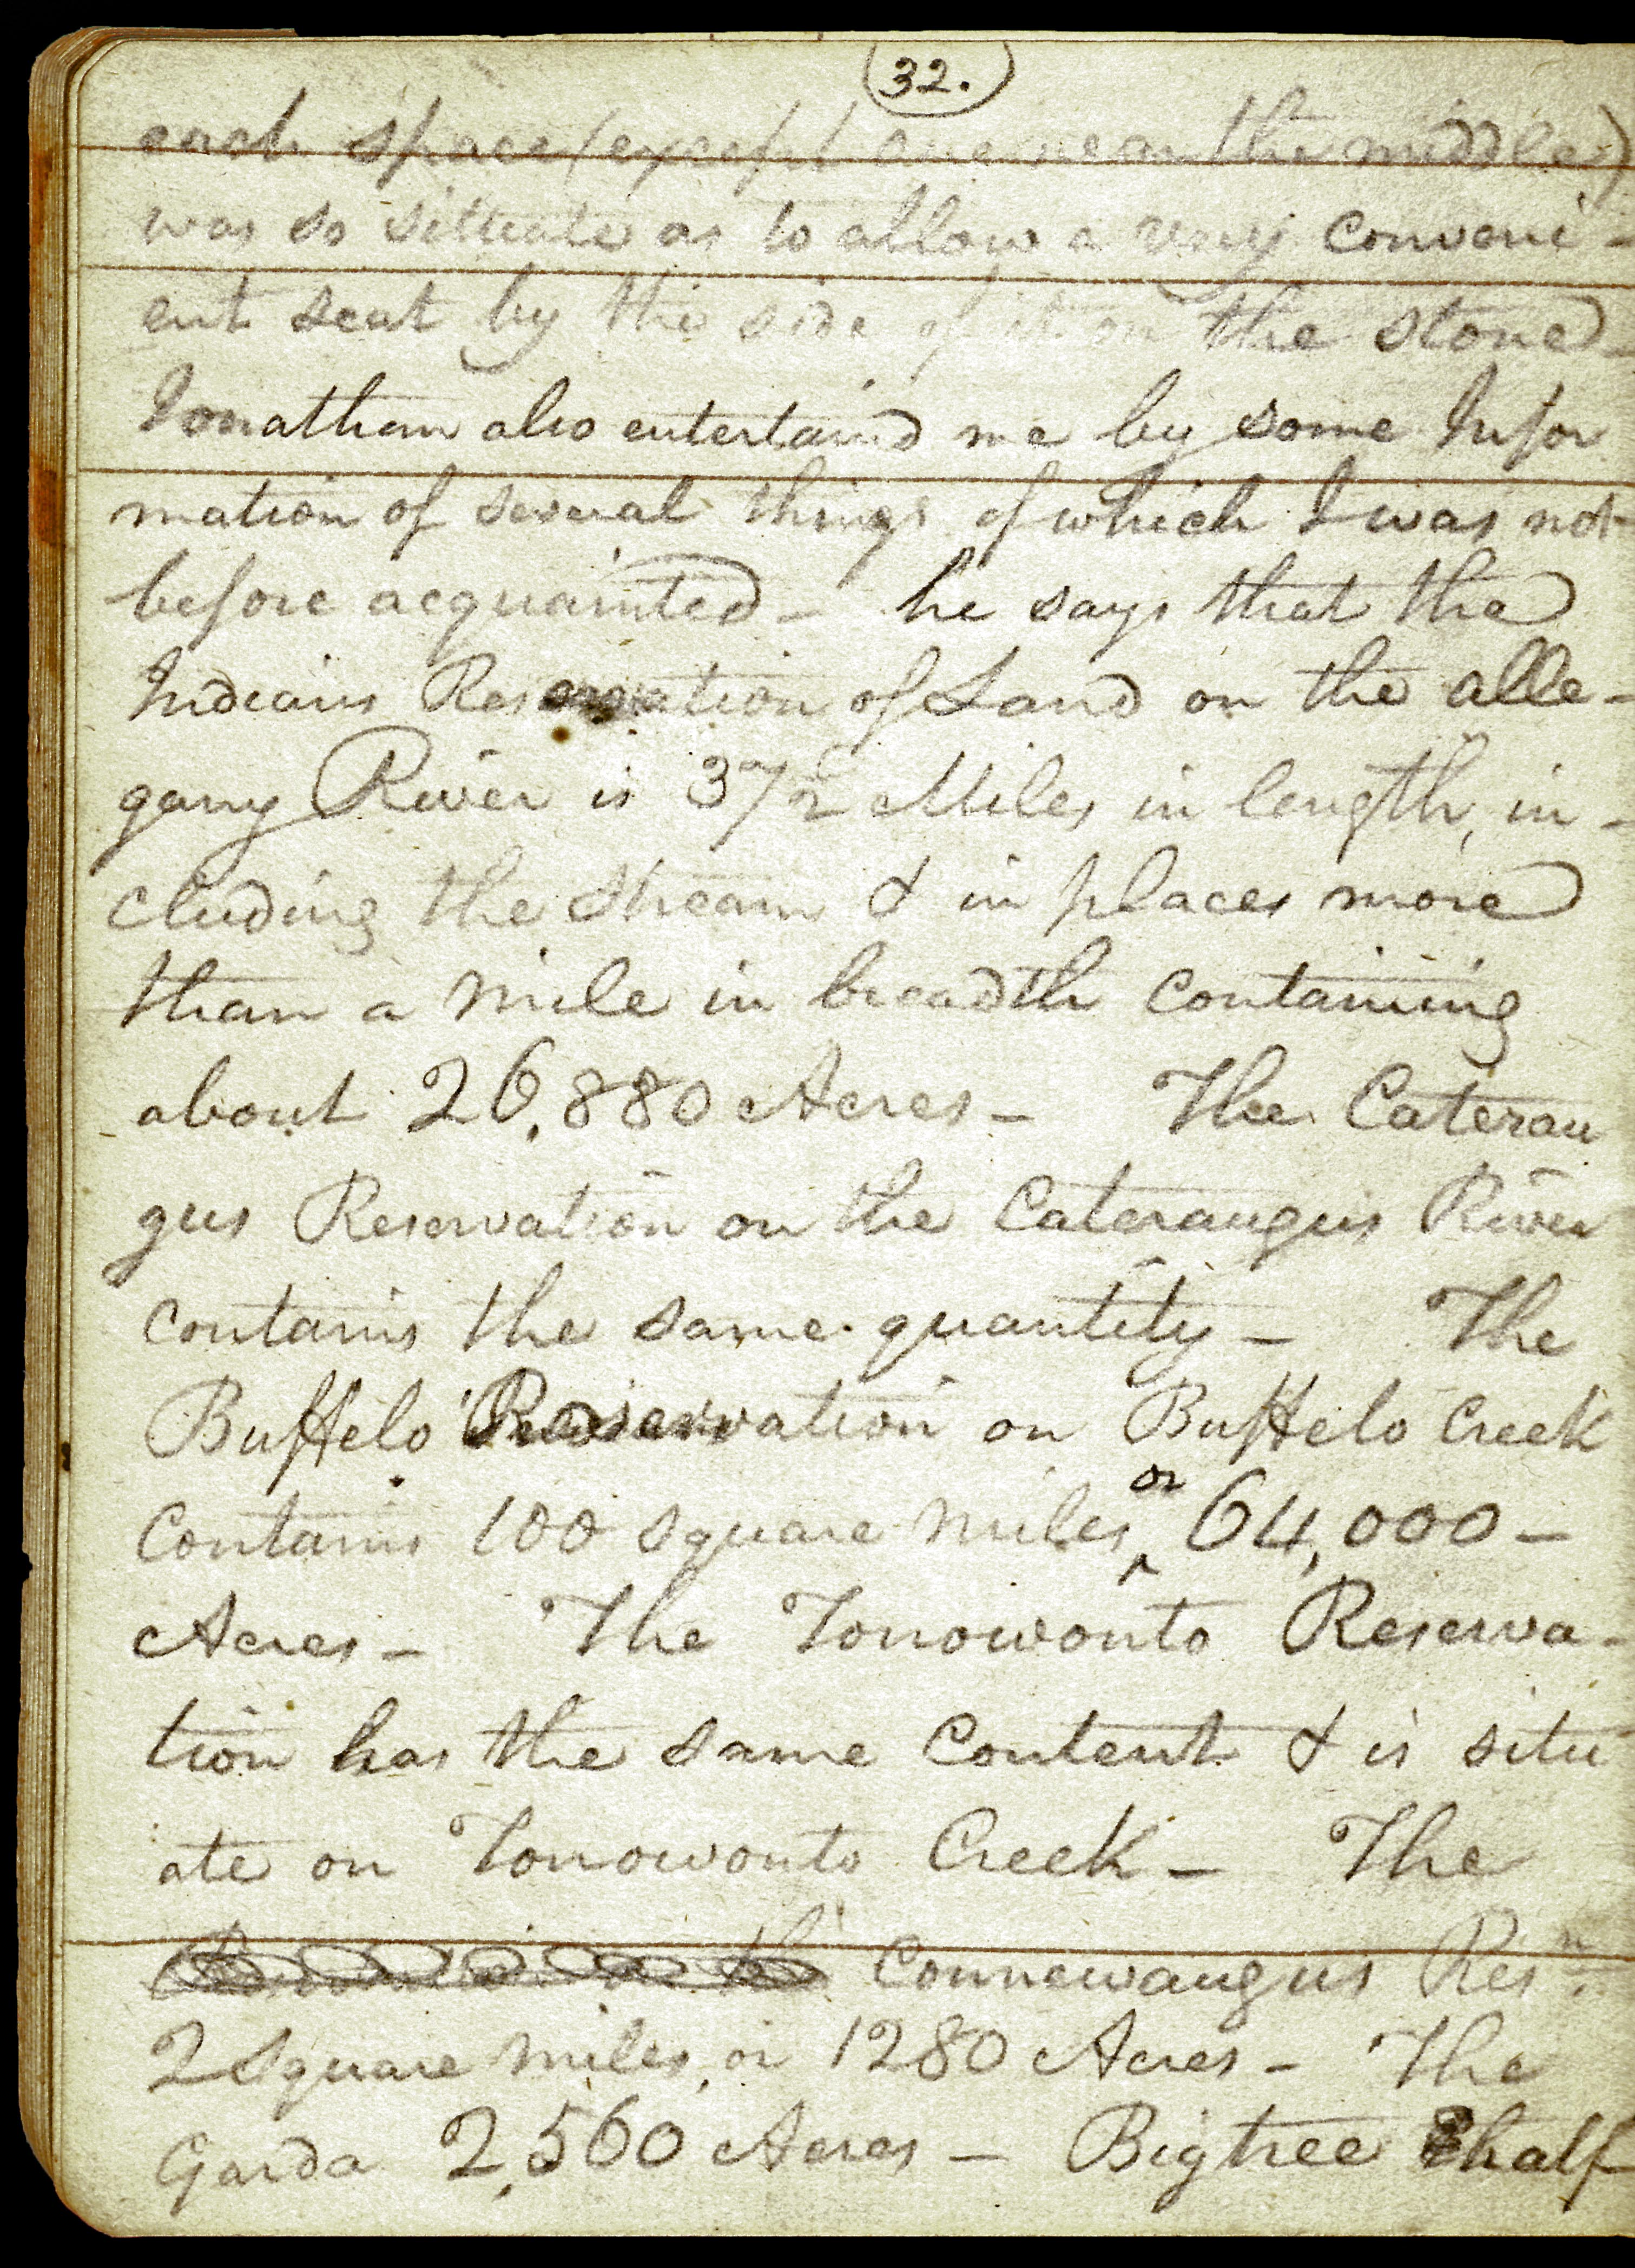 32.
each space (except one near the middle)
was so situate as to allow a very conveni-
ent seat by the side of it on the stone-
Jonathan also entertain'd me by some Infor
mation of several things of which I was not
before acquainted - he says that the
Indians Reservation of Land on the alle-
gany River is 37½ Miles in length, in-
cluding the Stream & in places more
than a mile in breadth containing
about 26,880 Acres - The Caterau
gus Reservation on the Cateraugus River
contains the same quantity - The
Buffelo Reservation on Buffelo Creek
Contains 100 square miles or 64,000 -
Acres - The Tonowonto Reserva-
tion has the same Content & is situ
ate on Tonowonto Creek - The
Connewaugus Resn.
2 Square miles, or 1280 Acres - The
Garda 2,560 Acres - Bigtree half